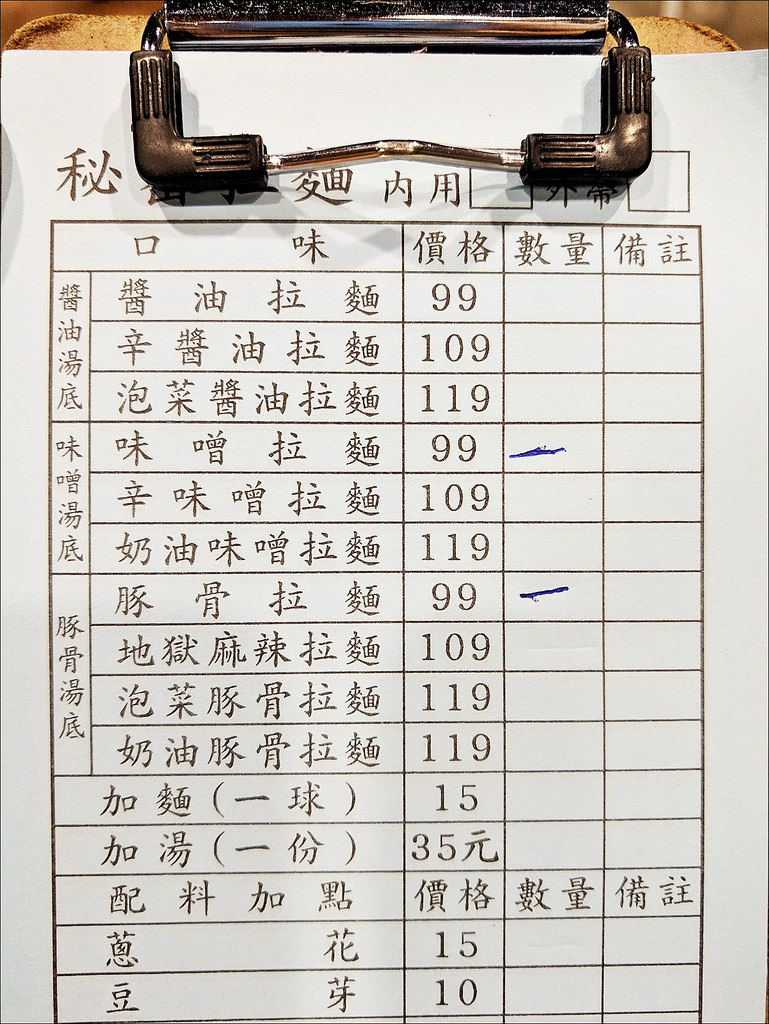 秘 麵 內用 外帶
口味 價格 數量 備註
醬油湯底
醬油拉麵 99
辛醬油拉麵 109
泡菜醬油拉麵 119
味噌湯底
味噌拉麵 99 一
辛味噌拉麵 109
奶油味噌拉麵 119
豚骨湯底
豚骨拉麵 99 一
地獄麻辣拉麵 109
泡菜豚骨拉麵 119
奶油豚骨拉麵 119
加麵(一球) 15
加湯(一份) 35元
配料加點 價格 數量 備註
蔥花 15
豆芽 10